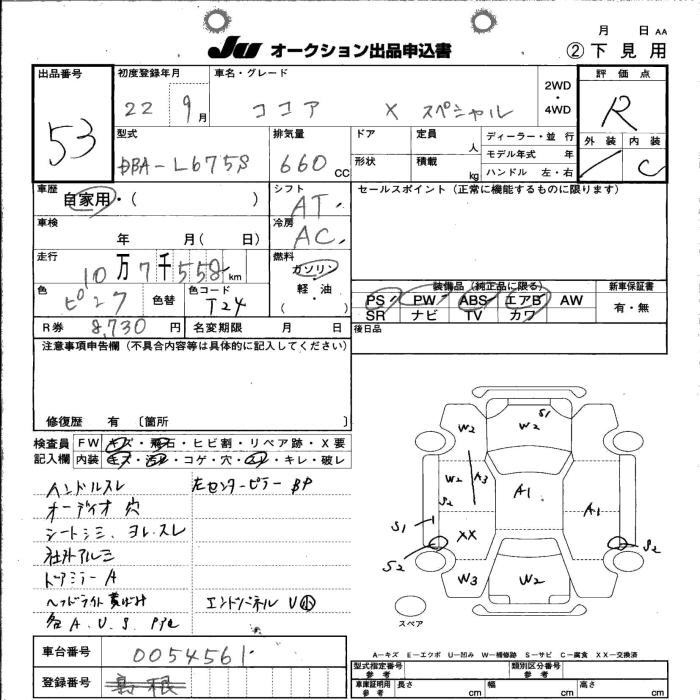 月 日 AA
JU オークション出品申込書 ②下見用
出品番号 初度登録年月 車名・グレード 2WD・4WD 評価点
53 22 9月 ココア X スペシャル R
外装 内装
C
型式 排気量 ドア 定員 人 ディーラー・並行
DBA-L675S 660 CC 形状 積載 kg モデル年式 年
ハンドル 左・右
車歴 シフト セールスポイント(正常に機能するものに限ります)
自家用・( ) AT
車検 冷房
年 月( 日) AC
走行 燃料
10万7千558km ガソリン・軽・油 ( )
色 色替 色コード 装備品(純正品に限る) 新車保証書
ピンク T24 PS PW ABS エアB AW 有・無
SR ナビ TV カワ
R券 8,730円 名変期限 月 日 後日品
注意事項申告欄(不具合内容等は具体的に記入してください)
修復歴 有 〔箇所 〕
検査員記入欄 FW キズ・飛石・ヒビ割・リペア跡・X要
内装 キズ・汚レ・コゲ・穴・スレ・キレ・破レ
ハンドルスレ 左センターピラーBP
オーディオ穴
シートシミ、ヨレ、スレ
社外アルミ
ドアミラーA
ヘッドライト黄ばみ エンドパネルU小
各A.U.S.
W2 W2 S1
W2 A3 A1 A1
S2
S1 XX S2
S2
W3 W2
スペア
A-キズ E-エクボ U-凹み W-補修跡 S-サビ C-腐食 XX-交換済
車台番号 0054561
登録番号 島根
型式指定番号 参考 類別区分番号 参考
車庫証明用 参考 長さ cm 幅 cm 高さ cm